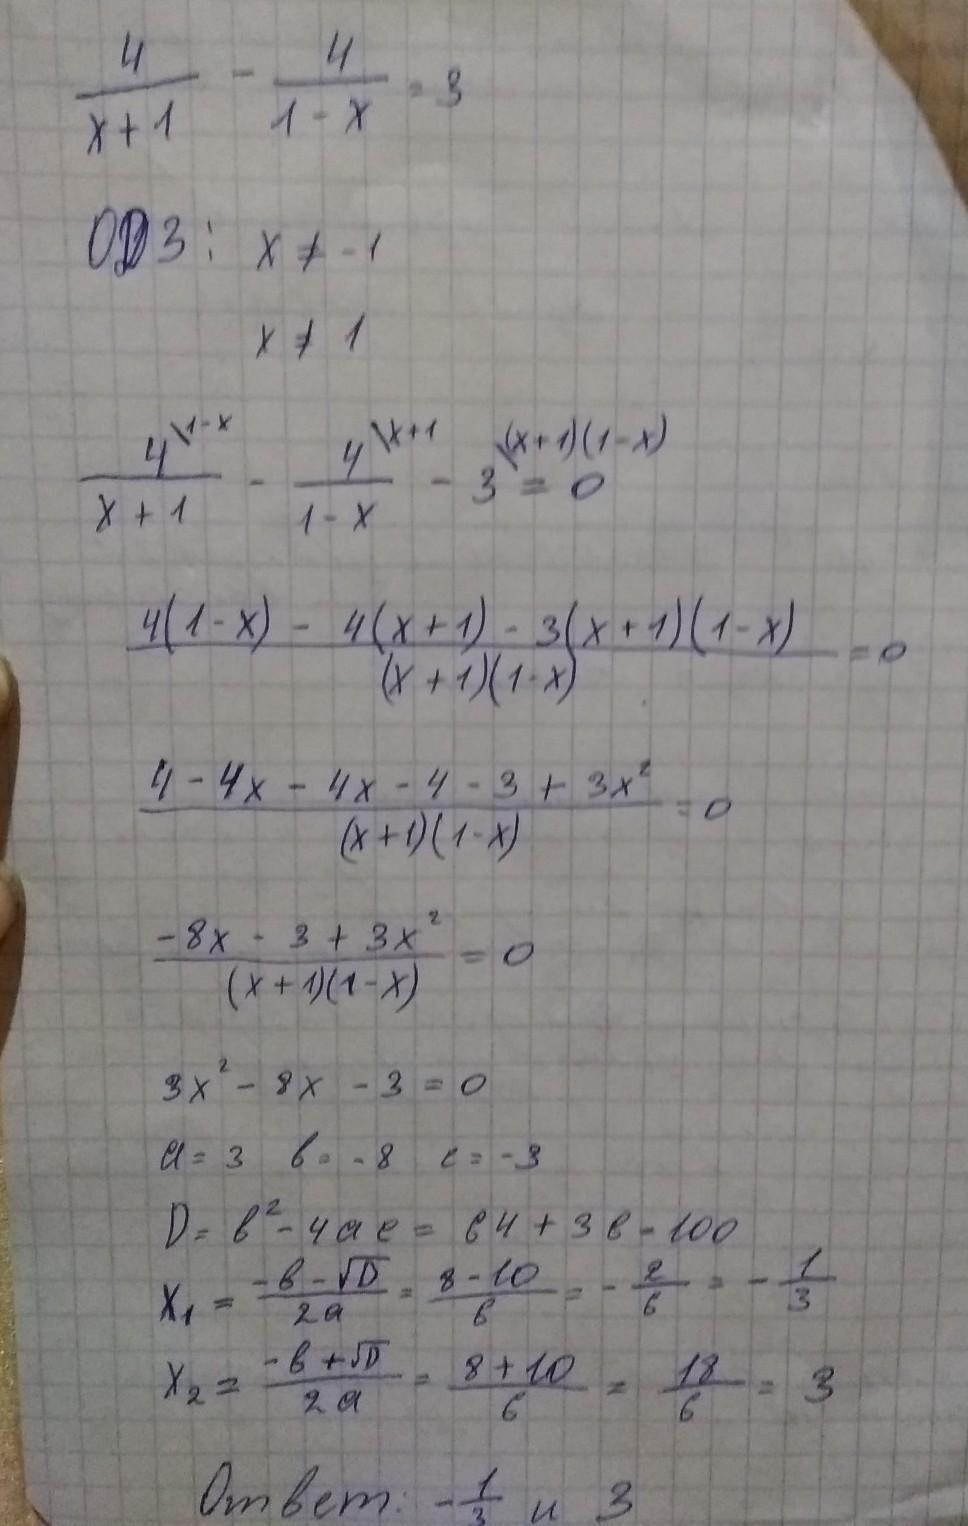 4/(x+1) - 4/(1-x) = 3
ОДЗ: x ≠ -1
x ≠ 1
4\1-x/(x+1) - 4\x+1/(1-x) - 3\(x+1)(1-x) = 0
(4(1-x) - 4(x+1) - 3(x+1)(1-x))/((x+1)(1-x)) = 0
(4 - 4x - 4x - 4 - 3 + 3x²)/((x+1)(1-x)) = 0
(-8x - 3 + 3x²)/((x+1)(1-x)) = 0
3x² - 8x - 3 = 0
a = 3 b = -8 c = -3
D = b² - 4ac = 64 + 36 = 100
x₁ = (-b - √D)/2a = (8 - 10)/6 = -2/6 = -1/3
x₂ = (-b + √D)/2a = (8 + 10)/6 = 18/6 = 3
Ответ: -1/3 и 3